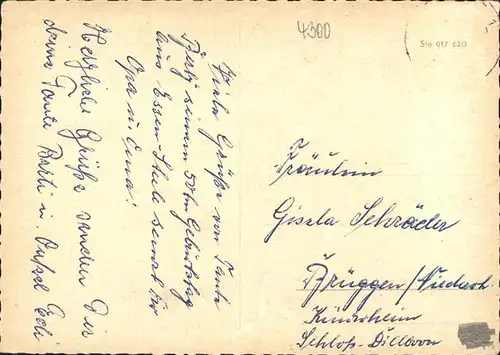 4300
Ste 017 62/5
Viele Grüße von Tante
seinem 50tn Geburtstag
aus Essen-Stele sendet Dir
Opa u. Oma!
Herzliche Grüße senden Dir
deine Tante Berti u. Onkel
Fräulein
Gisela Schröder
Brüggen/Niederrh.
Kinderheim
Schloß-Dilborn